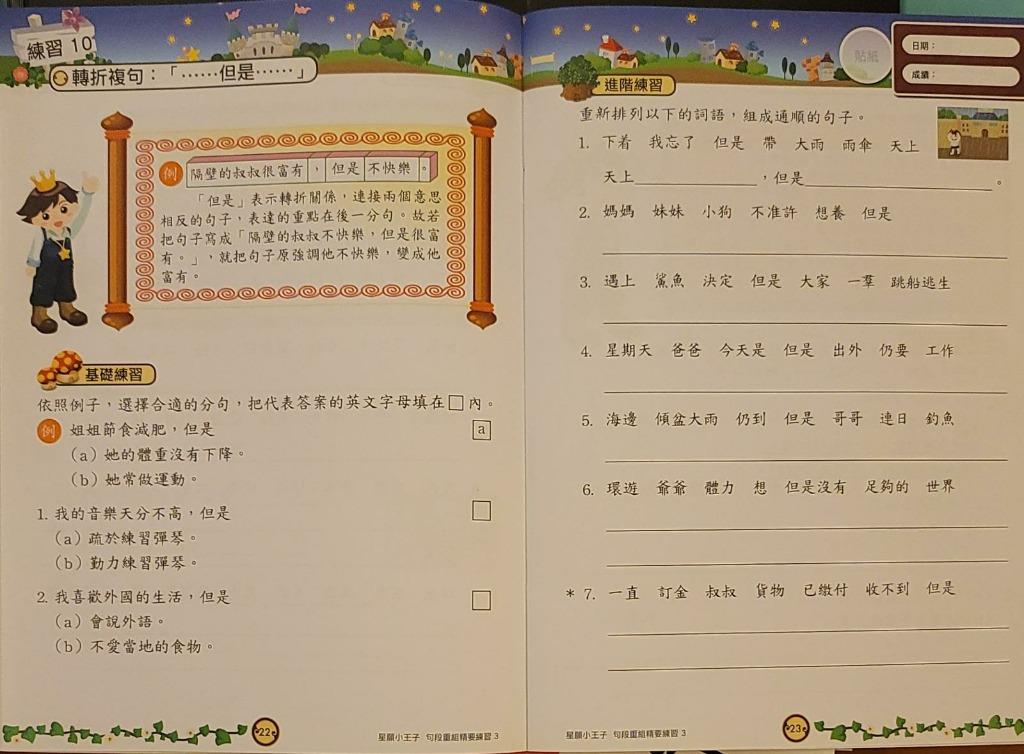 練習 10
轉折複句：「……但是……」
例 隔壁的叔叔很富有，但是不快樂。
「但是」表示轉折關係，連接兩個意思
相反的句子，表達的重點在後一分句。故若
把句子寫成「隔壁的叔叔不快樂，但是很富
有。」，就把句子原強調他不快樂，變成他
富有。
基礎練習
依照例子，選擇合適的分句，把代表答案的英文字母填在□內。
例 姐姐節食減肥，但是 a
（a）她的體重沒有下降。
（b）她常做運動。
1. 我的音樂天分不高，但是
（a）疏於練習彈琴。
（b）勤力練習彈琴。
2. 我喜歡外國的生活，但是
（a）會說外語。
（b）不愛當地的食物。
22
星願小王子 句段重組精要練習 3
貼紙
日期：
成績：
進階練習
重新排列以下的詞語，組成通順的句子。
1. 下着 我忘了 但是 帶 大雨 雨傘 天上
天上＿＿＿＿＿＿，但是＿＿＿＿＿＿＿＿＿。
2. 媽媽 妹妹 小狗 不准許 想養 但是
3. 遇上 鯊魚 決定 但是 大家 一羣 跳船逃生
4. 星期天 爸爸 今天是 但是 出外 仍要 工作
5. 海邊 傾盆大雨 仍到 但是 哥哥 連日 釣魚
6. 環遊 爺爺 體力 想 但是沒有 足夠的 世界
* 7. 一直 訂金 叔叔 貨物 已繳付 收不到 但是
星願小王子 句段重組精要練習 3
23